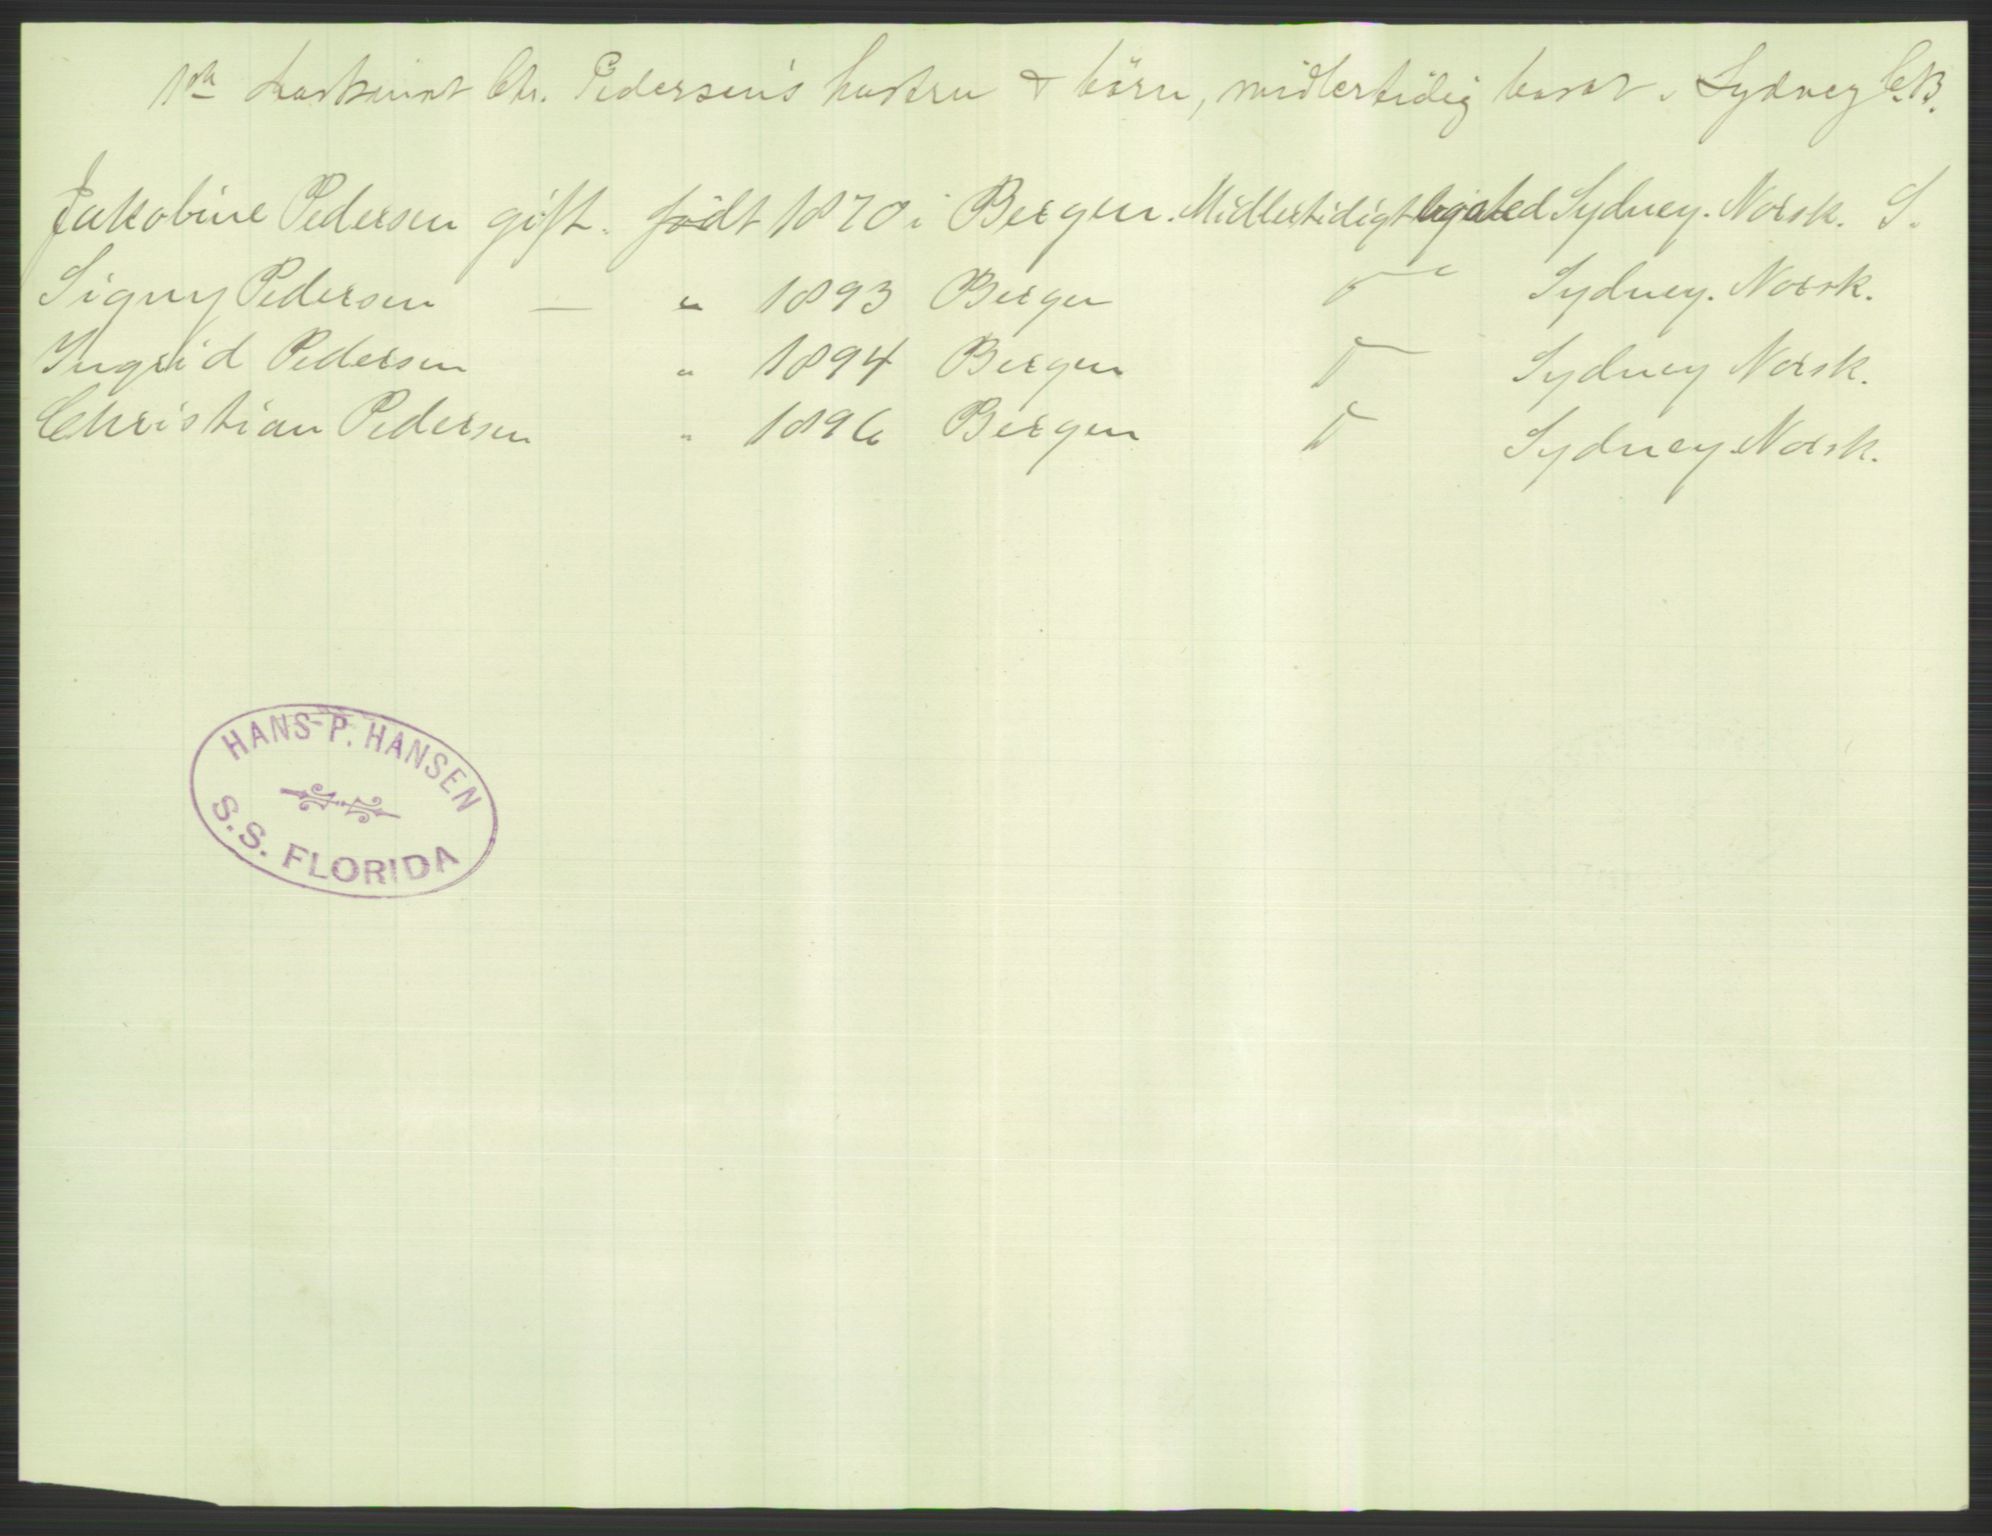 1ste Maskinist Chr. Pedersen's hustru & börn, midlertidig bosat i Sydney C.B.
Jakobine Pedersen gift. födt 1870 i Bergen. Midlertidigt Sydney. Norsk. S.
Signy Pedersen — " 1893 Bergen Sydney. Norsk.
Ingrid Pedersen " 1894 Bergen Sydney Norsk.
Christian Pedersen " 1896 Bergen Sydney Norsk.
HANS P. HANSEN
S.S. FLORIDA